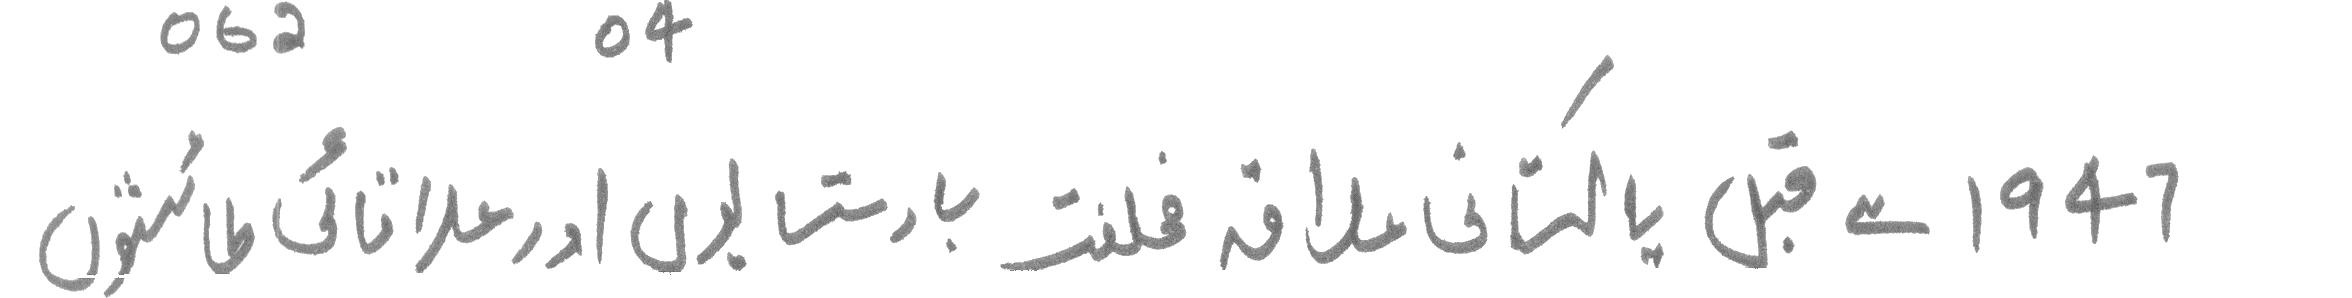 062 04
1947 سے قبل پاکستانی علاقہ مختلف بادشاہوں اور علاقائی طاقتوں